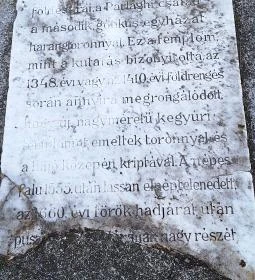 a második, gótikus egyházat
harangtoronnyal. Ez a templom,
mint a kutatás bizonyította, az
1348. évi vagy az 1410. évi földrengés
során annyira megrongálódott,
nagyméretű kegyúri
emeltek toronnyal és
a hajó közepén kriptával. A népes
falu 1555. után lassan elnéptelenedett,
az 1660. évi török hadjárat után
nagy részét